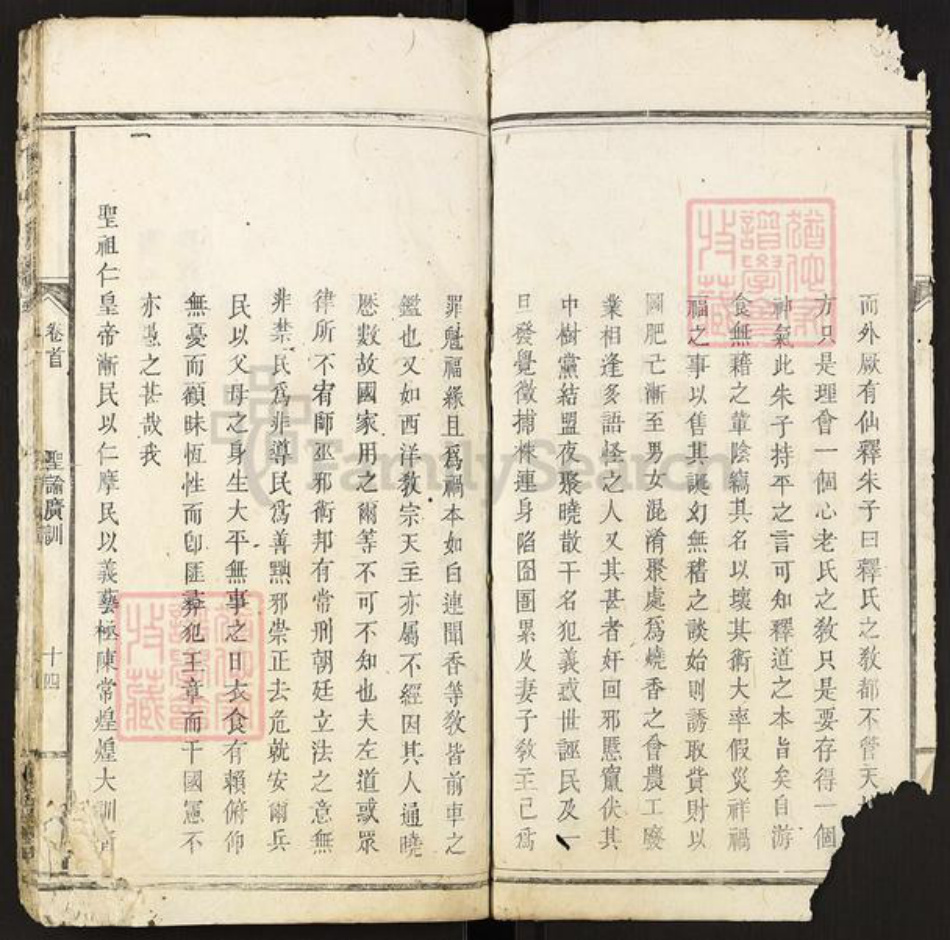 而外厥有仙釋朱子曰釋氏之教都不管天
方只是理會一個心老氏之教只是要存得一個
神氣此朱子持平之言可知釋道之本旨矣自游
食無藉之輩陰竊其名以壞其術大率假災祥禍
福之事以售其誕幻無稽之談始則誘取貲財以
圖肥己漸至男女混淆聚處為燒香之會農工廢
業相逢多語怪之人又其甚者奸回邪慝竄伏其
中樹黨結盟夜聚曉散干名犯義惑世誣民及一
旦發覺徵捕株連身陷囹圄累及妻子教主已為
罪魁福緣且為禍本如白連聞香等教皆前車之
鑑也又如西洋教宗天主亦屬不經因其人通曉
歷數故國家用之爾等不可不知也夫左道惑眾
律所不宥師巫邪術邦有常刑朝廷立法之意無
非禁民為非導民為善黜邪崇正去危就安爾兵
民以父母之身生大平無事之日衣食有賴俯仰
無憂而顧昧恆性而卽匪彝犯王章而干國憲不
亦愚之甚哉我
聖祖仁皇帝漸民以仁摩民以義藝極陳常煌煌大訓
卷首
聖諭廣訓
十四
FamilySearch
譜學會
收藏
譜學會
收藏